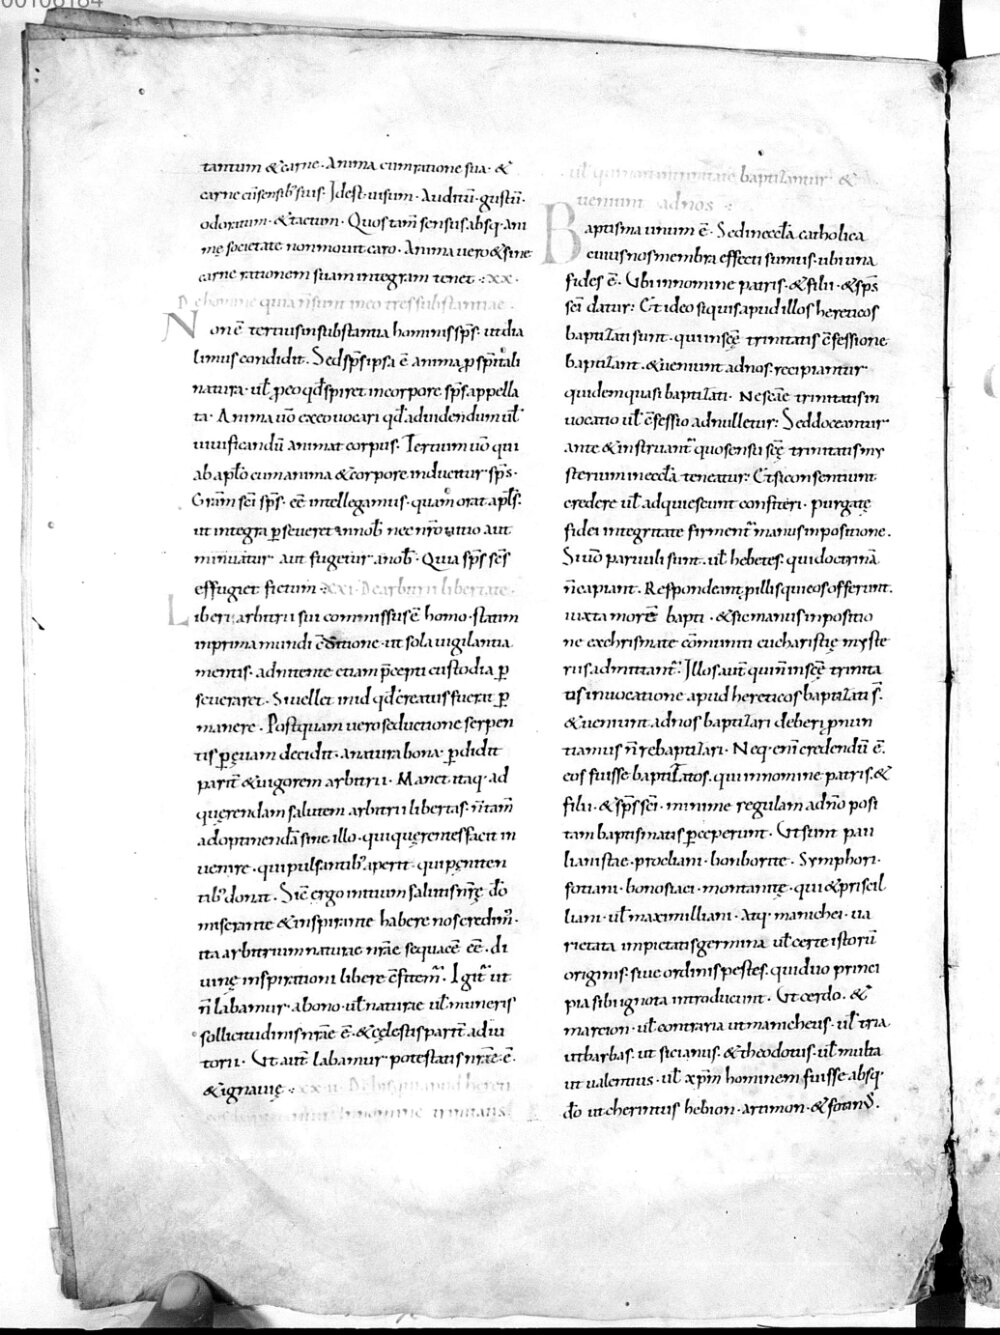 00106184
tantum & carne. Anima cum ratione sua. &
carne cū sensib; suis. Idest uisum. Auditū. gustū.
odoratum. & tactum. Quos tam̄ sensus absq. ani
mę societate non mouit caro. Anima uero & sine
carne rationem suam integram tenet. xx.
De homine quia n̄ sunt in eo tres substantiae.
Non ē tertius in substantia hominis sp̄s. ut di a
limus condidit. Sed sp̄s ipsa ē anima. p̱ sp̄itali
natura. ul̄ p̱ eo qd̄ spiret in corpore sp̄s appella
ta. Anima uō ex eo uocari qd̄ ad uidendum ul̄
uiuificandū animat corpus. Tertium uō qui
ab apl̄o cum anima & corpore inducitur sp̄s.
Gr̄am sc̄i sp̄s. eē intellegamus. quam orat apl̄s.
ut integra p̱seueret in nob̄ nec nr̄o uitio aut
minuatur aut fugetur a nob̄. Quia sp̄s sc̄s
effugiet fictum. xxi. De arbitrii libertate.
Liberi arbitrii sui commissus ē homo. statim
in prima mundi c̄ditione. ut sola uigilantia
mentis. adnitente etiam p̄cepti custodia p̱
seueraret. Si uellet in id qd̄ creatus fuerit p̱
manere. Postquam uero seductione serpen
tis p̱ ęuam decidit. a natura bona. p̱didit
parit̄ & uigorem arbitrii. Manet itaq. ad
quęrendam salutem arbitrii libertas. n̄ tam̄
adoptinendā sine illo. qui quęrentes facit in
uenire. qui pulsantib; aperit. qui pęniten
tib; donat. Sic ergo initium salutis nr̄ę do̅
miserante & inspirante habere nos credim̄.
ita arbitrium naturae nr̄ae sequacē eē. di
uinę inspirationi libere c̄fitem̄. Igit̄ ut
n̄ labamur. a bono. ul̄ naturae ul̄ muneris
sollicitudinis nr̄ae ē. & cęlestis parit̄ adiu
torii. Ut aut̄ labamur potestatis nr̄ae ē.
& ignauię. xxii. De his qui apud hereti
cos baptizantur In nomine trinitatis
ul̄ qui non in trinitate baptizantur &
ueniunt ad nos
Baptisma unum ē. Sed in eccl̄a catholica
cuius nos membra effecti sumus. ubi una
fides ē. Ubi in nomine patris. & filii. & sp̄s
sc̄i datur. Et ideo si quis apud illos hereticos
baptizati sunt. qui in sc̄ę trinitatis c̄fessione
baptizant. & ueniunt ad nos. recipiantur
quidem quasi baptizati. Ne sc̄ae trinitatis in
uocatio ul̄ c̄fessio adnulletur. Sed doceantur
ante & instruant̄ quo sensu sc̄ę trinitatis my
sterium in eccl̄a teneatur. Et si consentiunt
credere ul̄ adquiescunt confiteri. purgatę
fidei integritate firment̄ manus inpositione.
Si uō paruuli sunt. ul̄ hebetes. qui doctrinā
n̄ capiant. Respondeant p̱ illis qui eos offerunt.
iuxta morē bapti. & sic manus inpositio
ne ex chrismate cōmuniti eucharistię myste
riis admittant̄. Illos aut̄ qui n̄ in sc̄ę trinita
tis inuocatione apud hereticos baptizati s̄.
& ueniunt ad nos baptizari deberi p̱nun
tiamus n̄ rebaptizari. Neq. enī credendū ē.
eos fuisse baptizatos. qui in nomine patris. &
filii. & sp̄s sc̄i. minime regulam a dn̄o posi
tam baptismatis p̱ceperunt. Ut sunt pau
lianistae. procliani. borborite. Symphori.
fotiani. bonosiaci. montanitę. qui & priscil
liani. ul̄ maximilliani. Atq. manichei. ua
rietata impietatis germina ul̄ certe istorū
originis. siue ordinis pestes. qui duo princi
pia sibi ignota introducunt. Ut cerdo. &
marcion. ul̄ contraria ut manicheus. ul̄ tria
ut barbas. ut sicianus. & theodotus. ul̄ multa
ut ualentius. ul̄ xp̄m hominem fuisse absq.
do̅ ut cherintus hebion. artimon. & fotinꝰ.